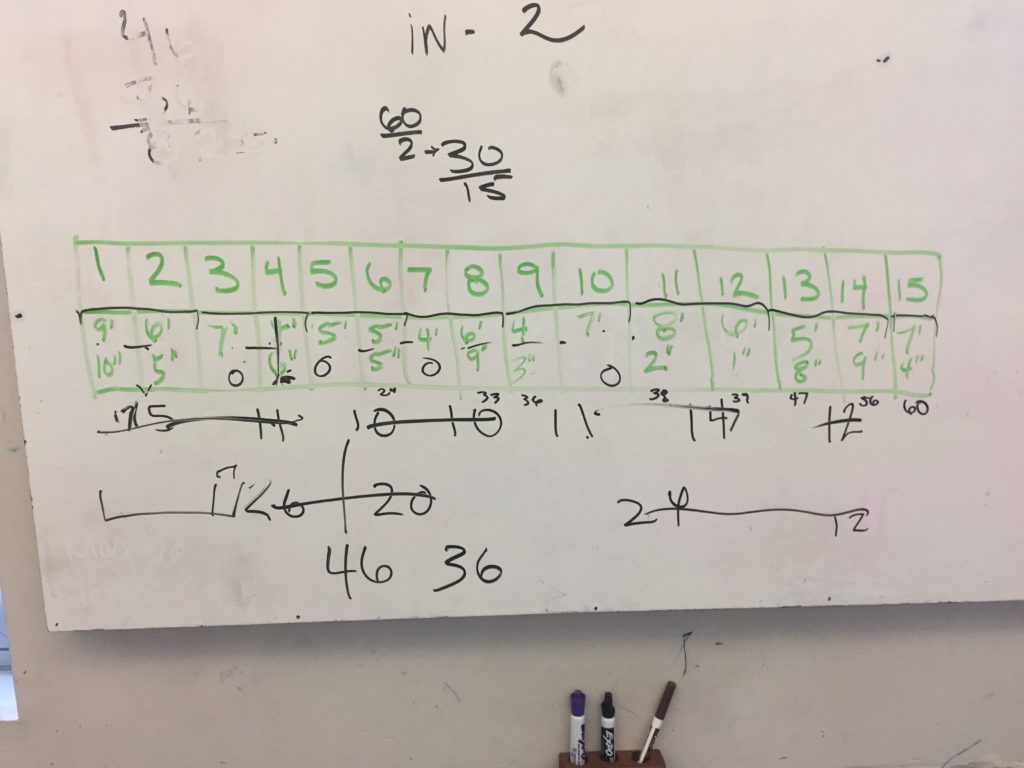 46
IN - 2
60
2 → 30
15
1 2 3 4 5 6 7 8 9 10 11 12 13 14 15
9' 6' 7' 5' 5' 4' 6' 4 7' 8' 6' 5 7' 7'
10" 5" 0 0 5" 0 9 3" 0 2" 1" 8" 9" 4"
33 36 38 39 47 56 60
15 11 10 10 11 14 12
26 20 24 12
46 36
EXPO